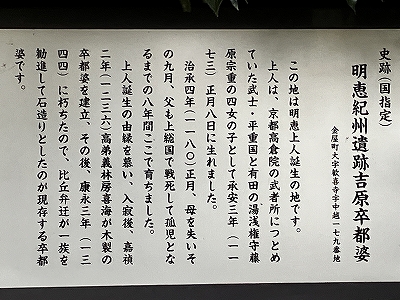 史跡(国指定)
明恵紀州遺跡吉原卒都婆
金屋町大字歓喜寺字中越一一七九番地
この地は明恵上人誕生の地です。
上人は、京都高倉院の武者所につとめ
ていた武士・平重国と有田の湯浅権守藤
原宗重の四女の子として承安三年(一一
七三)正月八日に生れました。
治承四年(一一八〇)正月、母を失いそ
の九月、父も上総国で戦死して孤児とな
るまでの八年間ここで育ちました。
上人誕生の由縁を慕い、入寂後、嘉禎
二年(一二三六)高弟義林房喜海が木製の
卒都婆を建立、その後、康永三年(一三
四四)に朽ちたので、比丘弁迁が一族を
勧進して石造りとしたのが現存する卒都
婆です。